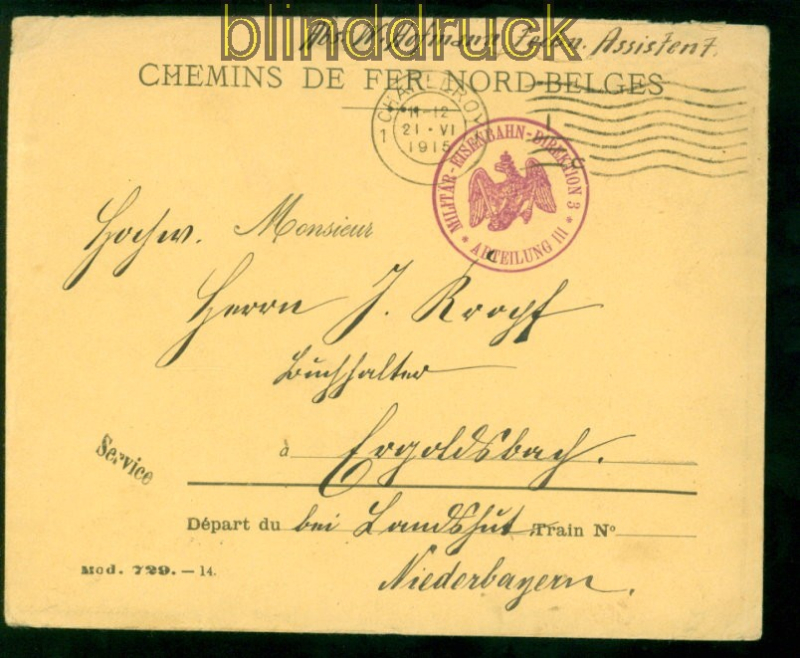 blinddruck
Abs. W. Hofmann Assistent.
CHEMINS DE FER NORD-BELGES
CHARLEROY
1 1
11-12
21·VI
1915
MILITÄR-EISENBAHN-DIREKTION 3
* ABTEILUNG III *
Hochw. Monsieur
Herrn J. Kropf
Buchhalter
Service
à Ergoldsbach.
Départ du bei Landshut Train Nº
Mod. 729. — 14.
Niederbayern.